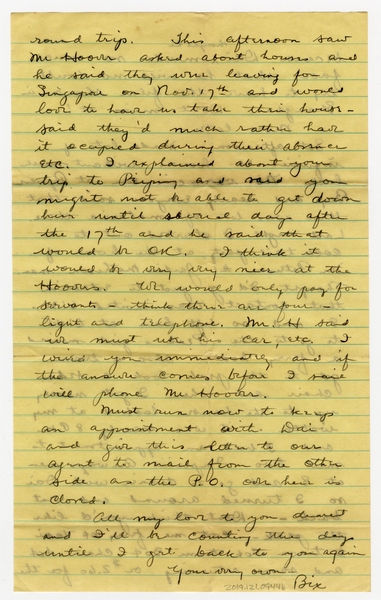 round trip. This afternoon saw
Mr Hoover asked about houses and
he said they were leaving for
Singapore on Nov. 17th and would
love to have us take their house -
said they'd much rather have
it occupied during their absence
etc. I explained about your
trip to Peiping and said you
might not be able to get down
here until several days after
the 17th and he said that
would be OK. I think it
would be very very nice at the
Hoovers. We would only pay for
servants - think there are four -
light and telephone. Mr. H said
we must use his car, etc. I
wired you immediately and if
the answer comes before I sail
will phone Mr Hoover.
Must run now to keep
an appointment with Dai
and give this letter to our
agent to mail from the other
side as the P.O. over here is
closed.
All my love to you dearest
and I'll be counting the days
until I get back to you again
Your very own
Bix
2019.12.0944b